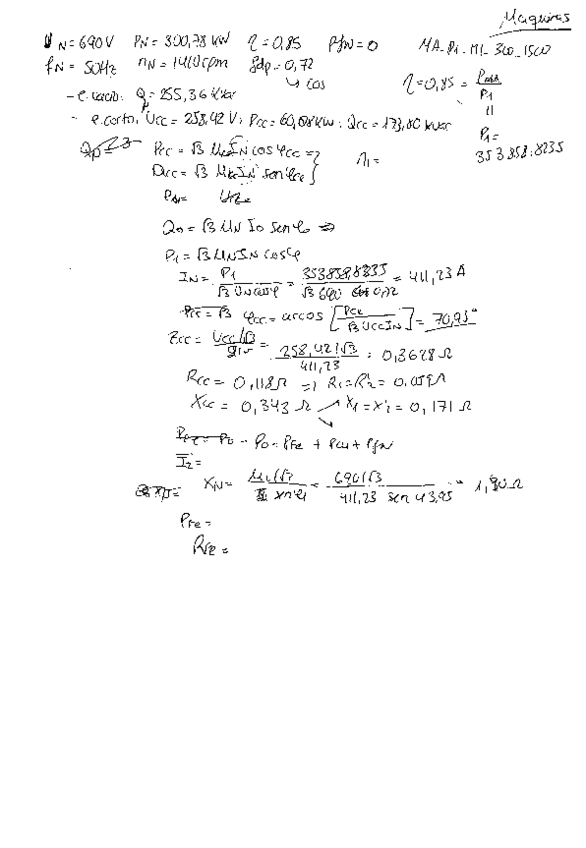 Maquinas
UN=690V PN=300,78 kW η=0,85 Pfw=0 MA-Pi-MI-300-1500
fN=50Hz nN=1410rpm fdp=0,72
↳ cos
η=0,85 = / P1
P1=
353858,8235
- e. vacio: Q=255,36 kVar
- e. corto: Ucc=258,42 V; Pcc=60,08 kW; Qcc=173,80 kvar
Pcc = √3 Ucc IN cosφcc =
Qcc = √3 Ucc IN senφcc
η1=
Q0 = √3 UN I0 sen φ0 ⇒
P1 = √3 UN IN cosφ
IN = P1 / √3 UN cosφ = 353858,8235 / √3 690 0,72 = 411,23 A
φcc = arcos [Pcc / √3 Ucc IN] = 70,93°
Zcc = Ucc/√3 / = 258,42/√3 / 411,23 = 0,3628 Ω
Rcc = 0,118Ω ⇒ R1=R'2 = 0,059Ω
Xcc = 0,343 Ω → X1 = X'2 = 0,171 Ω
P0 = PFe + Pcu + Pfw
I2' =
= 690/√3 / 411,23 sen 43,95 = 1,
PFe =
RFe =